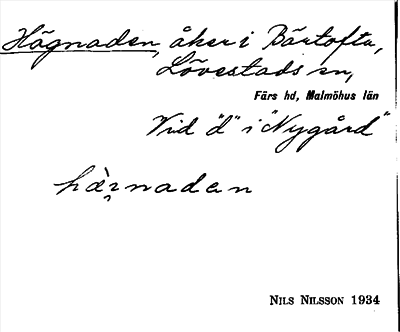 Hägnaden, åker i Bärtofta,
Lövestads sn,
Färs hd, Malmöhus län
Vid "d" i "Nygård"
hæ̀i̯naden
Nils Nilsson 1934